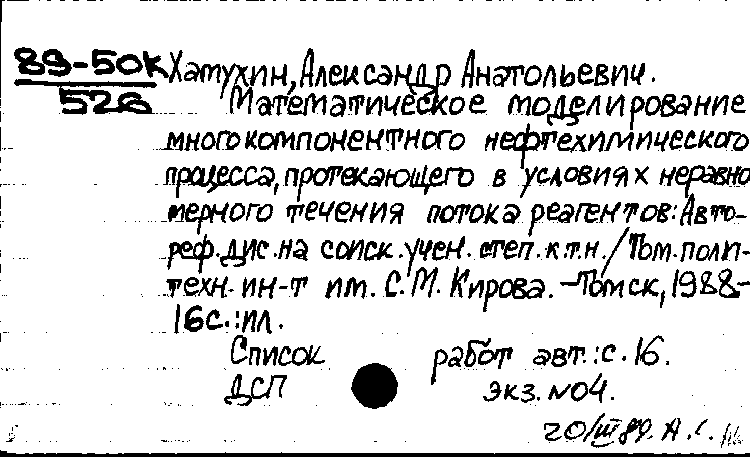 89-50К Хатухин, Александр Анатольевич.
526 Математическое моделирование
многокомпонентного нефтехимического
процесса, протекающего в условиях неравно
мерного течения потока реагентов: Авто-
реф. дис. на соиск. учен. степ. к.т.н. / Том. поли-
техн. ин-т им. С.М. Кирова. - Томск, 1988.-
16с.: ил.
Список работ авт.: с. 16.
ДСП экз. №04.
20/III 89. А.С.